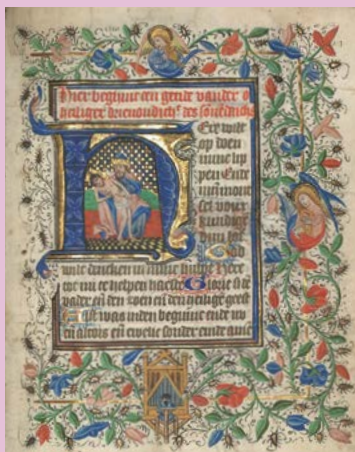 Hier beginnt een getide vander
heiliger drievoudich des sonendachs
Here wilt
op doen
mine lip
pen Ende
minn mont
sel voirt
kundige
dijn lof
God
wilt dencken in mine hulpe Here
tot mi te helpen haeste Glorie si dē
vader en den zoen en den heilige geest
Alst was inden beginne ende nu
en altoes en ewelic sonder einde amē